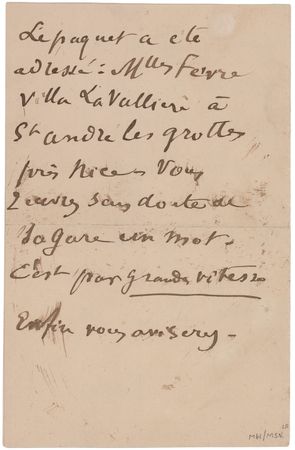 Le paquet a été
adressé: Mlles Fèvre
Villa La Vallière à
St andré les grottes
près Nice Vous
recevrez sans doute de
la gare un mot.
C'est par grande vitesse
Enfin vous aviserez -